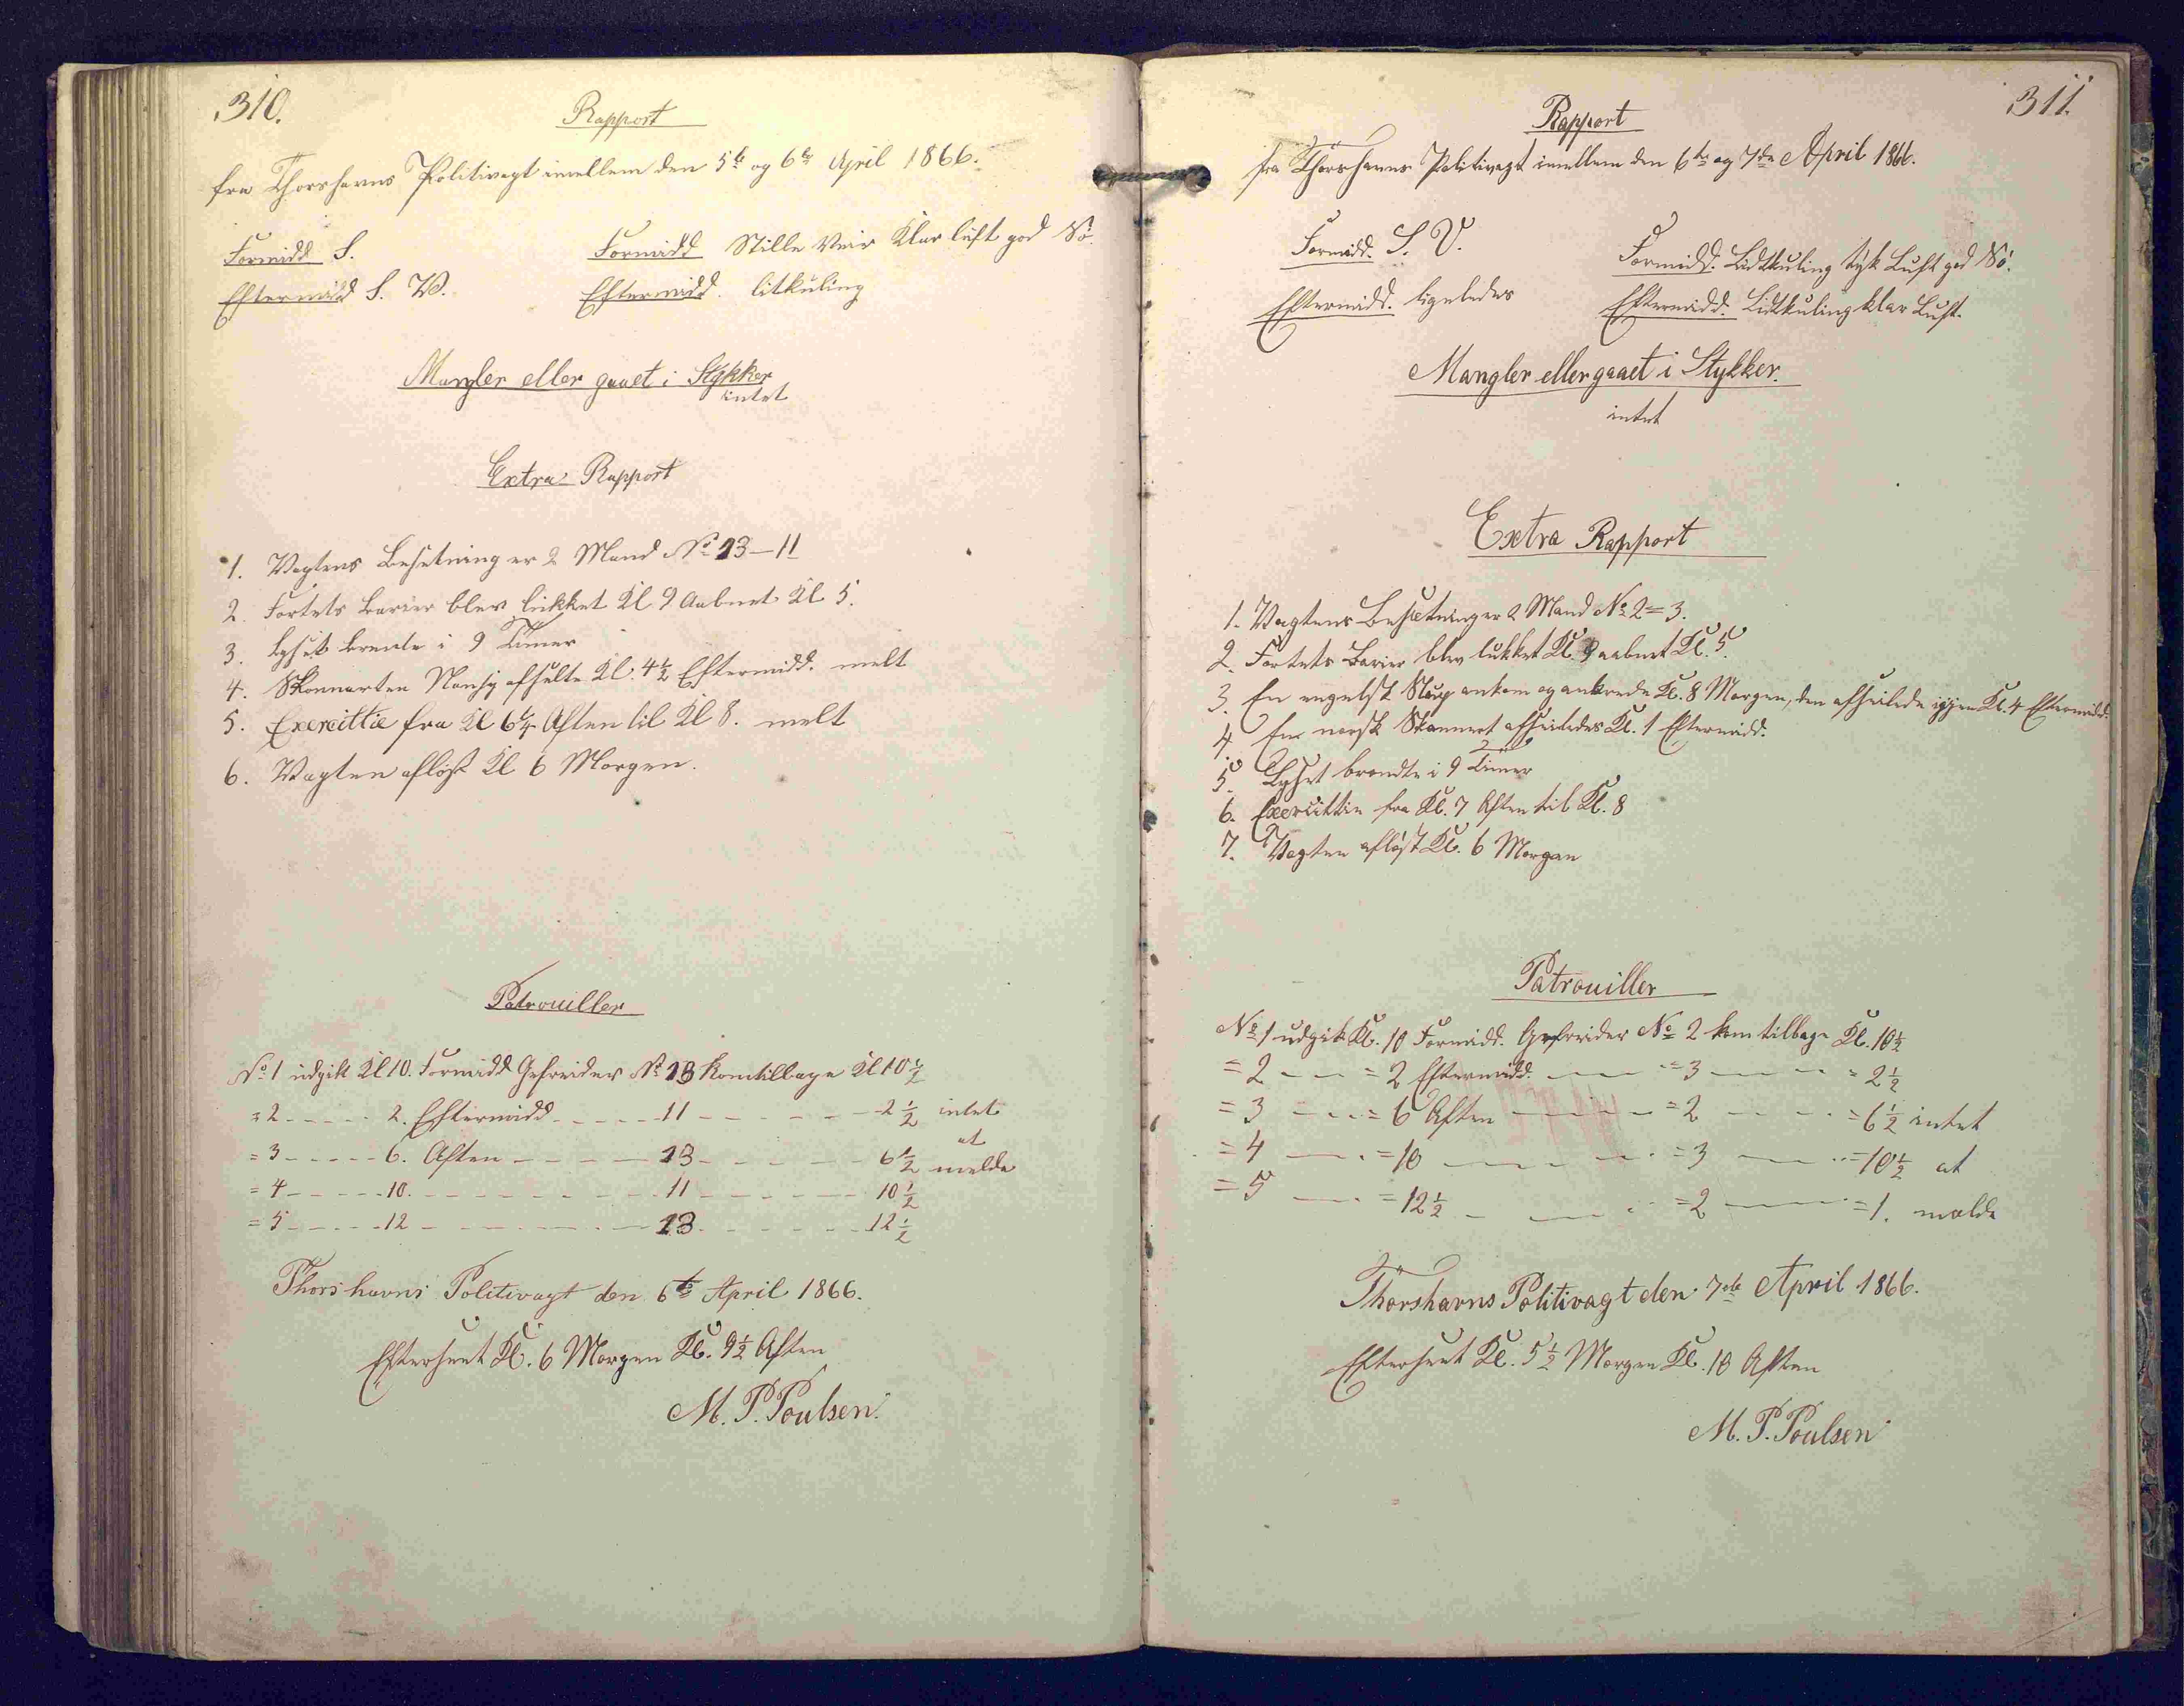 310.
Rapport
fra Thorshavns Politivagt imellem den 5te og 6te April 1866.
Formidd S. Formidd Stille Veir Klar luft god Sö.
Eftermidd S. V. Eftermidd. litkuling
Mangler eller gaaet i Stykker
intet
Extra Rapport
1. Vagtens Besetning er 2 Mand No 13–11
2. Fortets Barier blev lukket Kl 9 Aabnet Kl 5.
3. Lyset brente i 9 Timer
4. Skonnerten Nansy afseilte Kl. 4½ Eftermidd. melt
5. Exercittie fra Kl 6¼ Aften til Kl 8. melt
6. Vagten aflöst Kl 6 Morgen.
Patrouiller
No 1 udgik Kl 10. Formidd Gefreider No 13 Kom tilbage Kl 10½
= 2 - - - - - 2. Eftermidd - - - - - 11 - - - - - - 2½ intet
= 3 - - - - - 6. Aften - - - - - 13 - - - - - - 6½ at melde
= 4 - - - - - 10. - - - - - - - - - 11 - - - - - - 10½
= 5 - - - - - 12 - - - - - - - - - 13 - - - - - - 12½
Thorshavns Politivagt den 6te April 1866.
Efterseet Kl. 6 Morgen Kl. 9½ Aften
M. P. Poulsen.
311.
Rapport
fra Thorshavns Politivagt imellem den 6te og 7de April 1866.
Formidd. S. V. Formidd. Lidtkuling tyk Luft god Sö.
Eftermidd. ligeledes Eftermidd. Lidtkuling klar Luft.
Mangler eller gaaet i Stykker.
intet
Extra Rapport
1. Vagtens Besætning er 2 Mand No 2=3.
2. Fortets Barier blev lukket Kl. 9 aabnet Kl. 5.
3. En engelsk Slup ankom og ankrede Kl. 8 Morgen, den afseilede igjen Kl. 4 Eftermidd.
4. En norsk Skonnert afseiledes Kl. 1 Eftermidd.
5. Lyset brendte i 9 Timer
6. Exercittie fra Kl. 7 Aften til Kl. 8
7. Vagten aflöst Kl. 6 Morgen
Patrouiller
No 1 udgik Kl. 10 Formidd. Gefreider No 2 kom tilbage Kl. 10½
= 2 - - - = 2 Eftermidd. - - - = 3 - - - = 2½
= 3 - - - = 6 Aften - - - = 2 - - - = 6½ intet
= 4 - - - = 10 - - - = 3 - - - = 10½ at
= 5 - - - = 12½ - - - = 2 - - - = 1. melde
Thorshavns Politivagt den 7de April 1866.
Efterseet Kl. 5½ Morgen Kl. 10 Aften
M. P. Poulsen